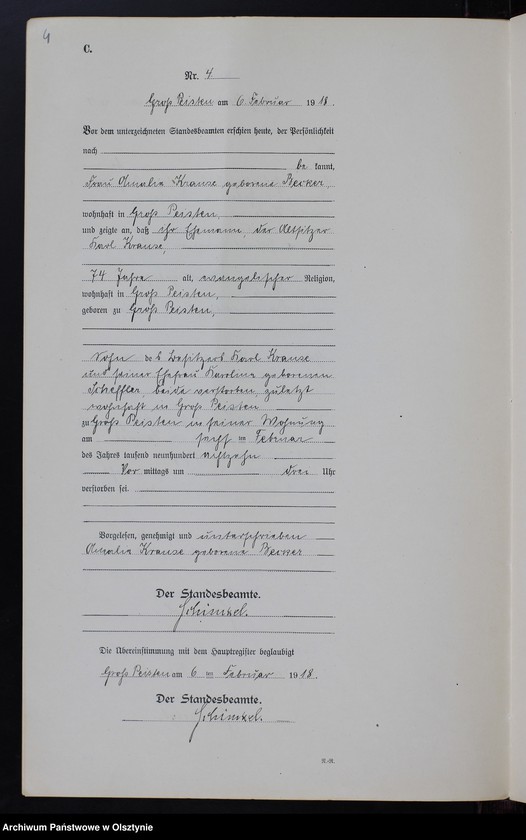 4
C.
Nr. 4
Groß Peisten am 6. Februar 1918.
Vor dem unterzeichneten Standesbeamten erschien heute, der Persönlichkeit
nach
be kannt,
Frau Amalia Krause geborene Becker,
wohnhaft in Groß Peisten,
und zeigte an, daß ihr Ehemann, der Altsitzer
Karl Krause,
74 Jahre alt, evangelischer Religion,
wohnhaft in Groß Peisten,
geboren zu Groß Peisten,
Sohn des Besitzers Karl Krause
und seiner Ehefrau Karoline geborenen
Scheffler, beide verstorben, zuletzt
wohnhaft in Groß Peisten
zu Groß Peisten in seiner Wohnung
am sechs ten Februar
des Jahres tausend neunhundert achtzehn
Vor mittags um drei Uhr
verstorben sei.
Vorgelesen, genehmigt und unterschrieben
Amalia Krause geborene Becker
Der Standesbeamte.
Schimkel.
Die Übereinstimmung mit dem Hauptregister beglaubigt
Groß Peisten am 6 ten Februar 1918.
Der Standesbeamte.
Schimkel.
R.-R.
Archiwum Państwowe w Olsztynie